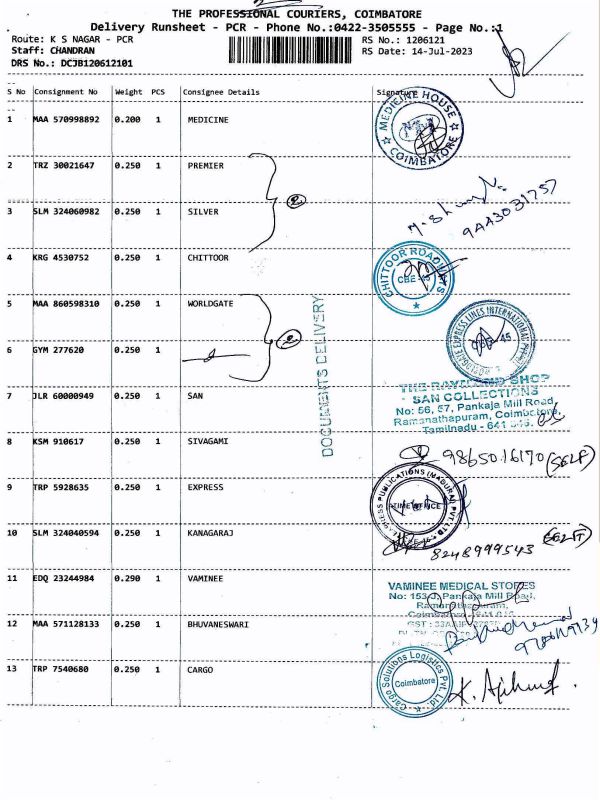 THE PROFESSIONAL COURIERS, COIMBATORE
Delivery Runsheet - PCR - Phone No.:0422-3505555 - Page No.:1
Route: K S NAGAR - PCR
RS No.: 1206121
Staff: CHANDRAN
RS Date: 14-Jul-2023
DRS No.: DCJB120612101
S No Consignment No Weight PCS Consignee Details Signature
1 MAA 570998892 0.200 1 MEDICINE
MEDICINE HOUSE
COIMBATORE
2 TRZ 30021647 0.250 1 PREMIER
2
3 SLM 324060982 0.250 1 SILVER
4 KRG 4530752 0.250 1 CHITTOOR
CHITTOOR ROADWAYS
CBE-45
5 MAA 860598310 0.250 1 WORLDGATE
2
WORLDGATE EXPRESS LINES INTERNATIONAL
6 GYM 277620 0.250 1
DOCUMENTS DELIVERY
7 JLR 60000949 0.250 1 SAN
THE RAYMOND SHOP
SAN COLLECTIONS
No: 56, 57, Pankaja Mill Road,
Ramanathapuram, Coimbatore,
Tamilnadu - 641 045.
8 KSM 910617 0.250 1 SIVAGAMI
9865016170 (SELF)
9 TRP 5928635 0.250 1 EXPRESS
EXPRESS PUBLICATIONS (MADURAI) PVT LTD
TIME OFFICE
10 SLM 324040594 0.250 1 KANAGARAJ
8248999543 (SELF)
11 EDQ 23244984 0.290 1 VAMINEE
VAMINEE MEDICAL STORES
No: 153-J, Pankaja Mill Road,
Ramanathapuram,
12 MAA 571128133 0.250 1 BHUVANESWARI
13 TRP 7540680 0.250 1 CARGO
Cargo Solutions Logistics Pvt. Ltd.
Coimbatore